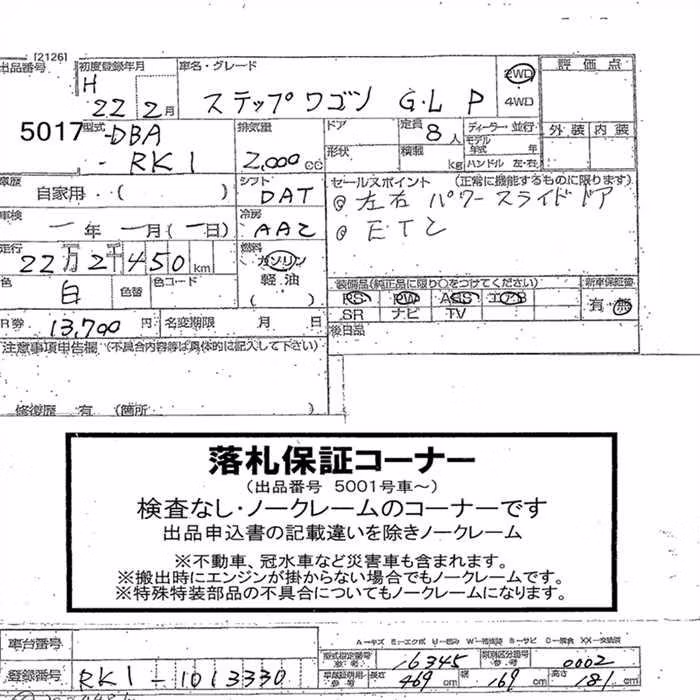 [2126]
出品番号 初度登録年月 車名・グレード 評価点
H 22 2月 ステップワゴン G・L P 2WD 4WD
5017 型式 DBA - RK1 排気量 2,000cc ドア 定員 8人 ディーラー・並行 外装 内装
形状 積載 kg モデル年式 年 ハンドル 左・右
車歴 自家用・( ) シフト DAT セールスポイント (正常に機能するものに限ります)
車検 一年 一月(一日) 冷房 AAC ◎左右 パワースライドドア
走行 22万2千450km 燃料 ガソリン 軽・油 ( ) ◎ETC
色 白 色替 色コード 装備品(純正品に限り○をつけてください) 新車保証書
PS PW ABS エアB 有・無
SR ナビ TV
R券 13,700円 名変期限 月 日 後日品
注意事項申告欄 (不具合内容等は具体的に記入して下さい)
修復歴 有 (箇所 )
落札保証コーナー
(出品番号 5001号車~)
検査なし・ノークレームのコーナーです
出品申込書の記載違いを除きノークレーム
※不動車、冠水車など災害車も含まれます。
※搬出時にエンジンが掛からない場合でもノークレームです。
※特殊特装部品の不具合についてもノークレームになります。
車台番号
登録番号 RK1-1013330
型式指定番号 参考 16345 類別区分番号 参考 0002
長さ 469cm 幅 169cm 高さ 181cm